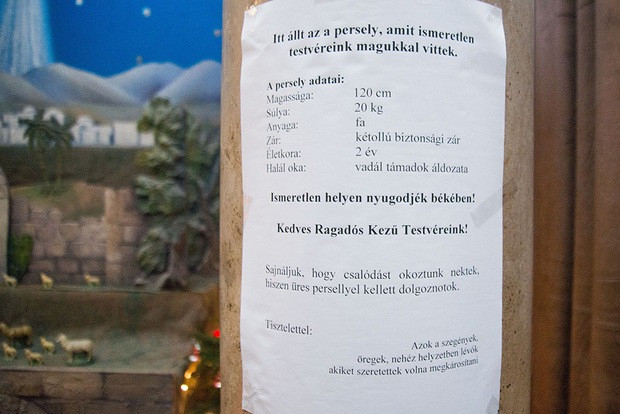 Itt állt az a persely, amit ismeretlen
testvéreink magukkal vittek.
A persely adatai:
Magassága: 120 cm
Súlya: 20 kg
Anyaga: fa
Zár: kétollú biztonsági zár
Életkora: 2 év
Halál oka: vadál támadok áldozata
Ismeretlen helyen nyugodjék békében!
Kedves Ragadós Kezű Testvéreink!
Sajnáljuk, hogy csalódást okoztunk nektek,
hiszen üres persellyel kellett dolgoznotok.
Tisztelettel:
Azok a szegények,
öregek, nehéz helyzetben lévők
akiket szeretettek volna megkárosítani